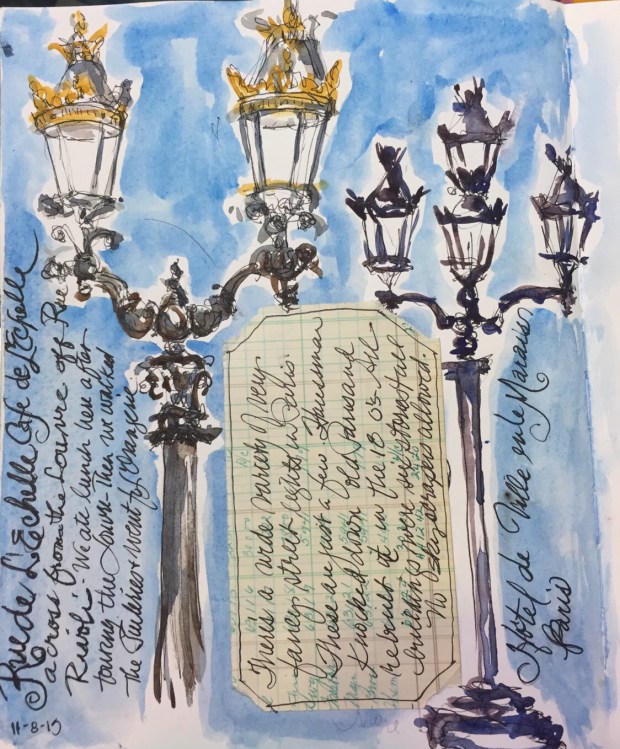 Rue de L'Echelle Cafe de L'Echelle
across from the Louvre off Rue
Rivoli. We ate lunch here after
touring the Louvre. Then we walked
the Tuileries & went to l'Orangerie
11-8-15
There's a wide variety of very
fancy street lights in Paris.
These are just a few. Haussmann
knocked down Old Paris and
rebuilt it in the 1800s. All
buildings five or six stories tall
No skyscrapers allowed.
Hotel de Ville en le Marais
Paris